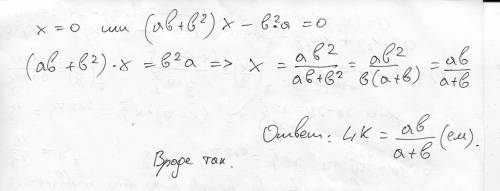 x = 0 или (ab + b²)x − b²·a = 0
(ab + b²)·x = b²a => x = ab²/(ab + b²) = ab²/(b(a+b)) = ab/(a+b)
Ответ: LK = ab/(a+b) (см).
Вроде так.